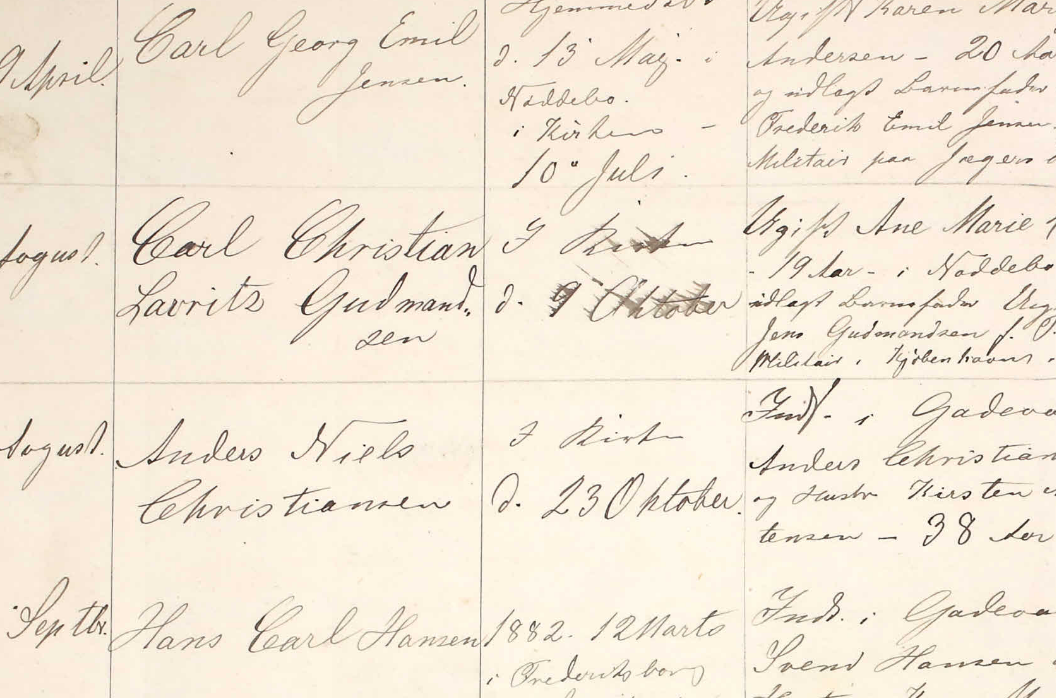 9 April.
Carl Georg Emil
Jensen.
Hjemmedøbt
d. 13 Maj. i
Nøddebo.
i Kirken –
10" Juli.
Ugift Karen Mari
Andersen – 20 Aa
og udlagt Barnefader
Frederik Emil Jensen
Militair paa Jægers
August.
Carl Christian
Lavritz Gudmand„
sen
I Kirken
d. 9 Oktober
Ugift Ane Marie
- 19 Aar - i Nøddebo
udlagt Barnefader Ung
Jens Gudmandsen f.
Militair i Kjøbenhavn
August.
Anders Niels
Christiansen
I Kirken
d. 23 Oktober.
Inds. i Gadevan
Anders Christian
og Hustr Kirsten
tensen – 38 Aar
Septbr.
Hans Carl Hansen
1882. 12 Marts
i Frederiksborg
Inds. i Gadeva
Svend Hansen